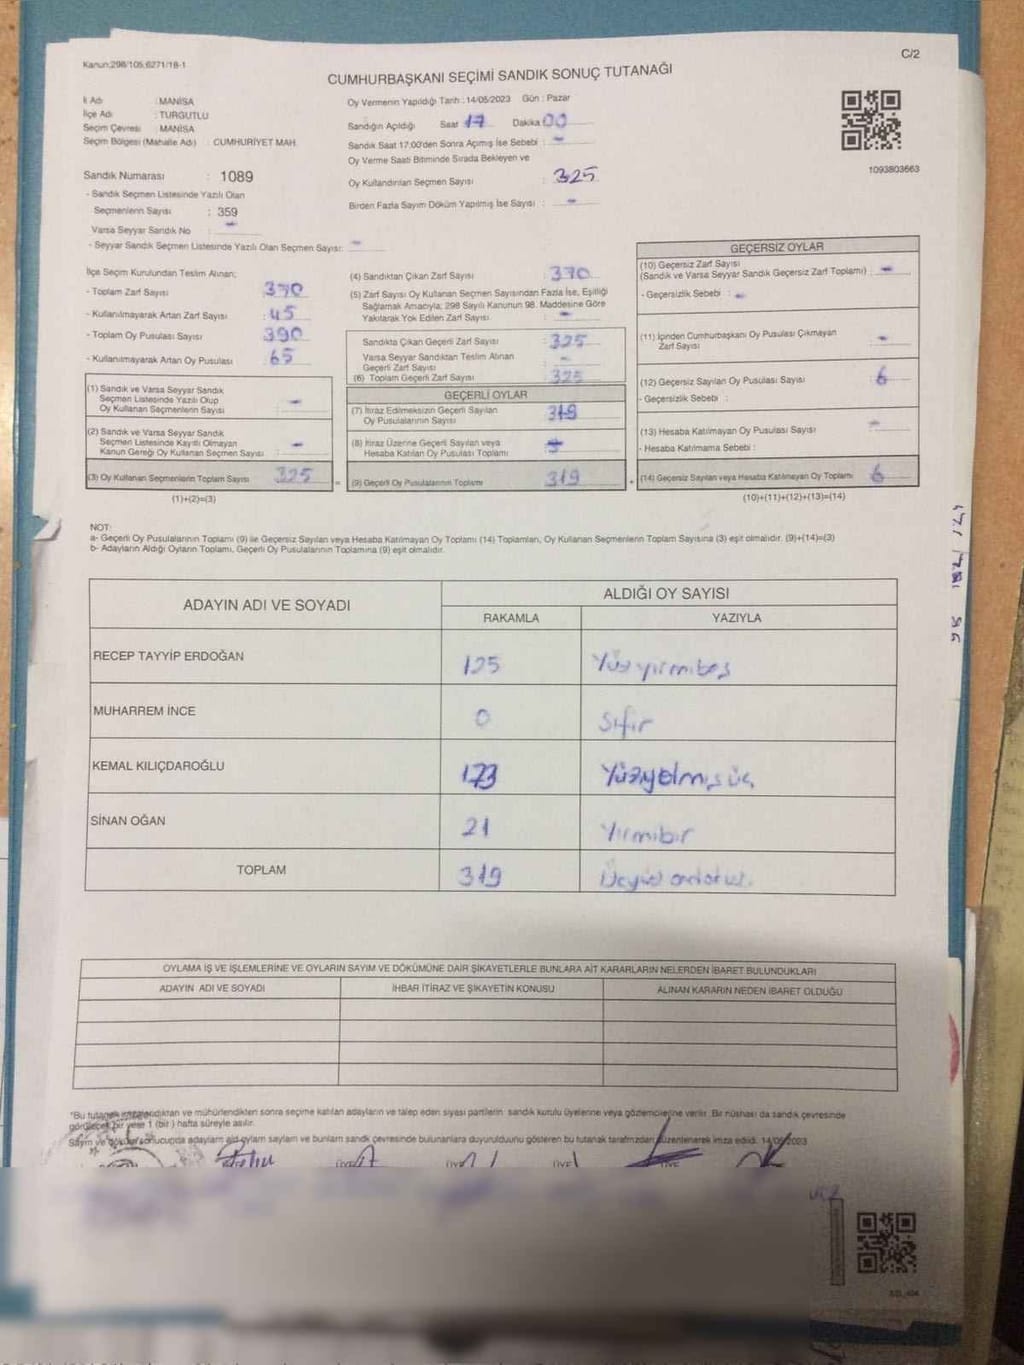 Kanun:298/105,6271/18-1
C/2
CUMHURBAŞKANI SEÇİMİ SANDIK SONUÇ TUTANAĞI
İl Adı : MANİSA
İlçe Adı : TURGUTLU
Seçim Çevresi : MANİSA
Seçim Bölgesi (Mahalle Adı) : CUMHURİYET MAH.
Sandık Numarası : 1089
- Sandık Seçmen Listesinde Yazılı Olan
Seçmenlerin Sayısı : 359
Varsa Seyyar Sandık No : -
- Seyyar Sandık Seçmen Listesinde Yazılı Olan Seçmen Sayısı: -
Oy Vermenin Yapıldığı Tarih : 14/05/2023 Gün : Pazar
Sandığın Açıldığı Saat 17 Dakika 00
Sandık Saat 17.00'den Sonra Açılmış İse Sebebi : -
Oy Verme Saati Bitiminde Sırada Bekleyen ve
Oy Kullandırılan Seçmen Sayısı : 325
Birden Fazla Sayım Döküm Yapılmış İse Sayısı : -
1093803663
İlçe Seçim Kurulundan Teslim Alınan;
- Toplam Zarf Sayısı : 370
- Kullanılmayarak Artan Zarf Sayısı : 45
- Toplam Oy Pusulası Sayısı : 390
- Kullanılmayarak Artan Oy Pusulası : 65
(1) Sandık ve Varsa Seyyar Sandık
Seçmen Listesinde Yazılı Olup
Oy Kullanan Seçmenlerin Sayısı : -
(2) Sandık ve Varsa Seyyar Sandık
Seçmen Listesinde Kayıtlı Olmayan
Kanun Gereği Oy Kullanan Seçmen Sayısı : -
(3) Oy Kullanan Seçmenlerin Toplam Sayısı : 325
(1)+(2)=(3)
(4) Sandıktan Çıkan Zarf Sayısı : 370
(5) Zarf Sayısı Oy Kullanan Seçmen Sayısından Fazla İse, Eşitliği
Sağlamak Amacıyla, 298 Sayılı Kanunun 98. Maddesine Göre
Yakılarak Yok Edilen Zarf Sayısı : -
Sandıkta Çıkan Geçerli Zarf Sayısı : 325
Varsa Seyyar Sandıktan Teslim Alınan
Geçerli Zarf Sayısı : -
(6) Toplam Geçerli Zarf Sayısı : 325
GEÇERLİ OYLAR
(7) İtiraz Edilmeksizin Geçerli Sayılan
Oy Pusulalarının Sayısı : 319
(8) İtiraz Üzerine Geçerli Sayılan veya
Hesaba Katılan Oy Pusulası Toplamı :
(9) Geçerli Oy Pusulalarının Toplamı : 319
GEÇERSİZ OYLAR
(10) Geçersiz Zarf Sayısı
(Sandık ve Varsa Seyyar Sandık Geçersiz Zarf Toplamı) : -
- Geçersizlik Sebebi : -
(11) İçinden Cumhurbaşkanı Oy Pusulası Çıkmayan
Zarf Sayısı : -
(12) Geçersiz Sayılan Oy Pusulası Sayısı : 6
- Geçersizlik Sebebi :
(13) Hesaba Katılmayan Oy Pusulası Sayısı : -
- Hesaba Katılmama Sebebi :
(14) Geçersiz Sayılan veya Hesaba Katılmayan Oy Toplamı : 6
(10)+(11)+(12)+(13)=(14)
NOT:
a- Geçerli Oy Pusulalarının Toplamı (9) ile Geçersiz Sayılan veya Hesaba Katılmayan Oy Toplamı (14) Toplamları, Oy Kullanan Seçmenlerin Toplam Sayısına (3) eşit olmalıdır. (9)+(14)=(3)
b- Adayların Aldığı Oyların Toplamı, Geçerli Oy Pusulalarının Toplamına (9) eşit olmalıdır.
ADAYIN ADI VE SOYADI
ALDIĞI OY SAYISI
RAKAMLA YAZIYLA
RECEP TAYYİP ERDOĞAN 125 Yüzyirmibeş
MUHARREM İNCE 0 Sıfır
KEMAL KILIÇDAROĞLU 173 Yüzyetmişüç
SİNAN OĞAN 21 Yirmibir
TOPLAM 319 Üçyüz ondokuz.
OYLAMA İŞ VE İŞLEMLERİNE VE OYLARIN SAYIM VE DÖKÜMÜNE DAİR ŞİKAYETLERLE BUNLARA AİT KARARLARIN NELERDEN İBARET BULUNDUKLARI
ADAYIN ADI VE SOYADI İHBAR İTİRAZ VE ŞİKAYETİN KONUSU ALINAN KARARIN NEDEN İBARET OLDUĞU
*Bu tutanak imzalandıktan ve mühürlendikten sonra seçime katılan adayların ve talep eden siyasi partilerin sandık kurulu üyelerine veya gözlemcilerine verilir. Bir nüshası da sandık çevresinde
görülecek bir yere 1 (bir) hafta süreyle asılır.
Sayım ve döküm sonucunda adayların aldığı oyların sayılarını ve bunların sandık çevresinde bulunanlara duyurulduğunu gösteren bu tutanak tarafımızdan düzenlenerek imza edildi. 14/05/2023
ÜYE
ÜYE
ÜYE
ÜYE